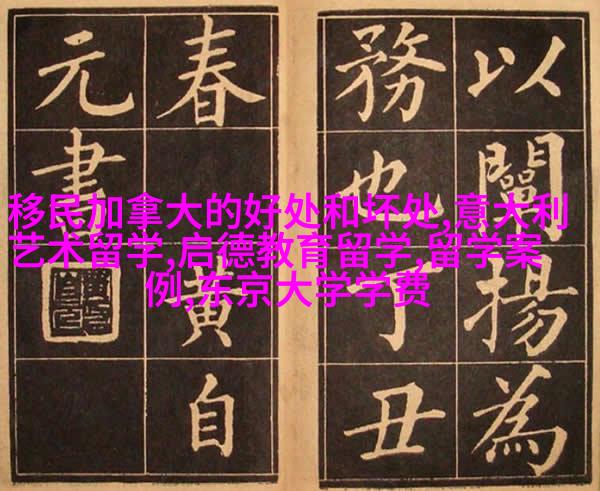 以闡揚為
務也丁丑
春 黄自
元書
移民加拿大的好处和坏处,意大利
艺术留学,启德教育留学,留学案
例,东京大学学费